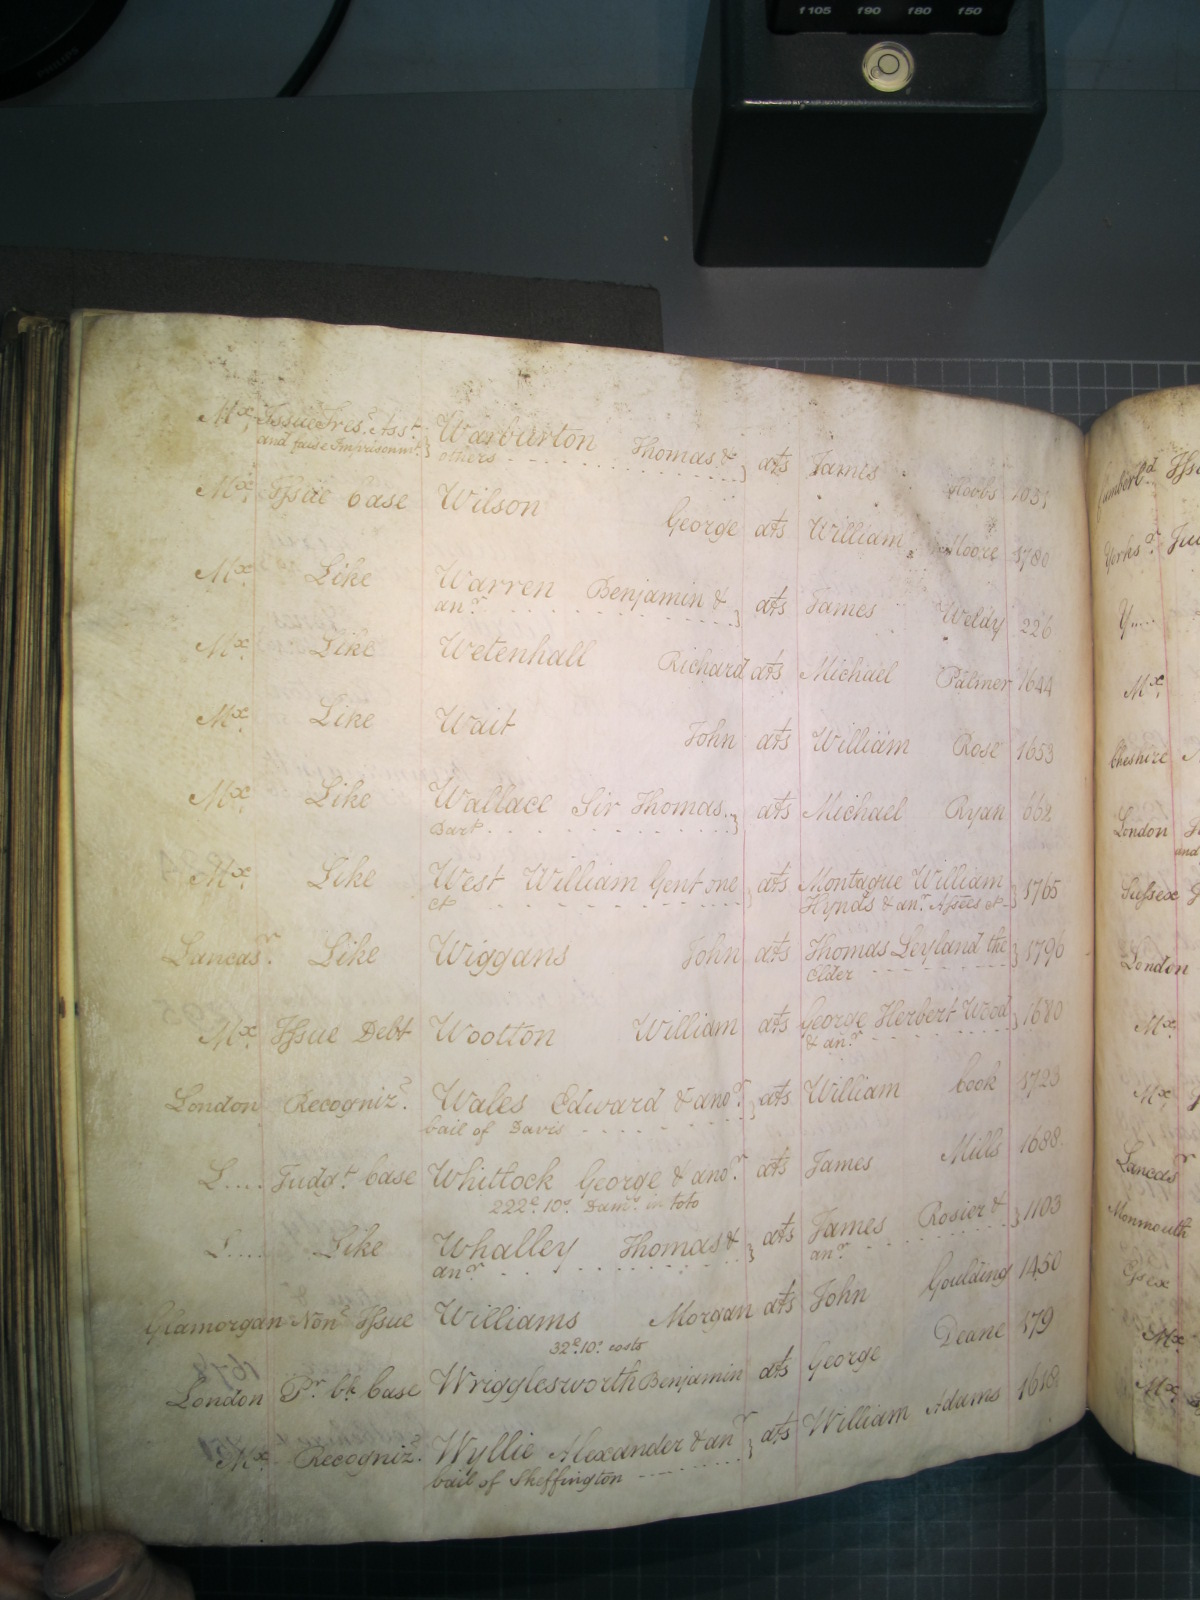 PHILIPS
f105 f90 f80 f50
Mx. Issue Tres. Asst. Warburton Thomas & ats James Hobbs
and false Imprisonmt. others
Mx. Issue Case Wilson George ats William Moore 1780
Mx. Like Warren Benjamin & ats James Weldy 226
anr.
Mx. Like Wetenhall Richard ats Michael Palmer 1644
Mx. Like Wait John ats William Rose 1653
Mx. Like Wallace Sir Thomas ats Michael Ryan 662
Bart.
Mx. Like West William Gent one ats Montague William 1765
&c Hynds & anr. Assees &c
Lancasr. Like Wiggans John ats Thomas Leyland the 1796
Elder
Mx. Issue Debt Wootton William ats George Herbert Wood 1680
& anr.
London Recogniz. Wales Edward & anor. ats William Cook 1723
bail of Davis
L.... Judgt. Case Whittock George & anor. ats James Mills 1688
222£.10s. Dams. in toto
L.... Like Whalley Thomas & ats James Rosier & 1103
anr. anr.
Glamorgan Non Issue Williams Morgan ats John Goulding 1450
32£.10s. costs
London Pr. bk. Case Wrigglesworth Benjamin ats George Deane 179
Mx. Recogniz. Wyllie Alexander & anr ats William Adams 1618
bail of Skeffington
Cumberld. Iss
Yorksr.
Y....
Mx.
Cheshire
London
and
Sussex
London
Mx.
Mx.
Lancasr
Monmouth
Essex
Mx.
Mx.